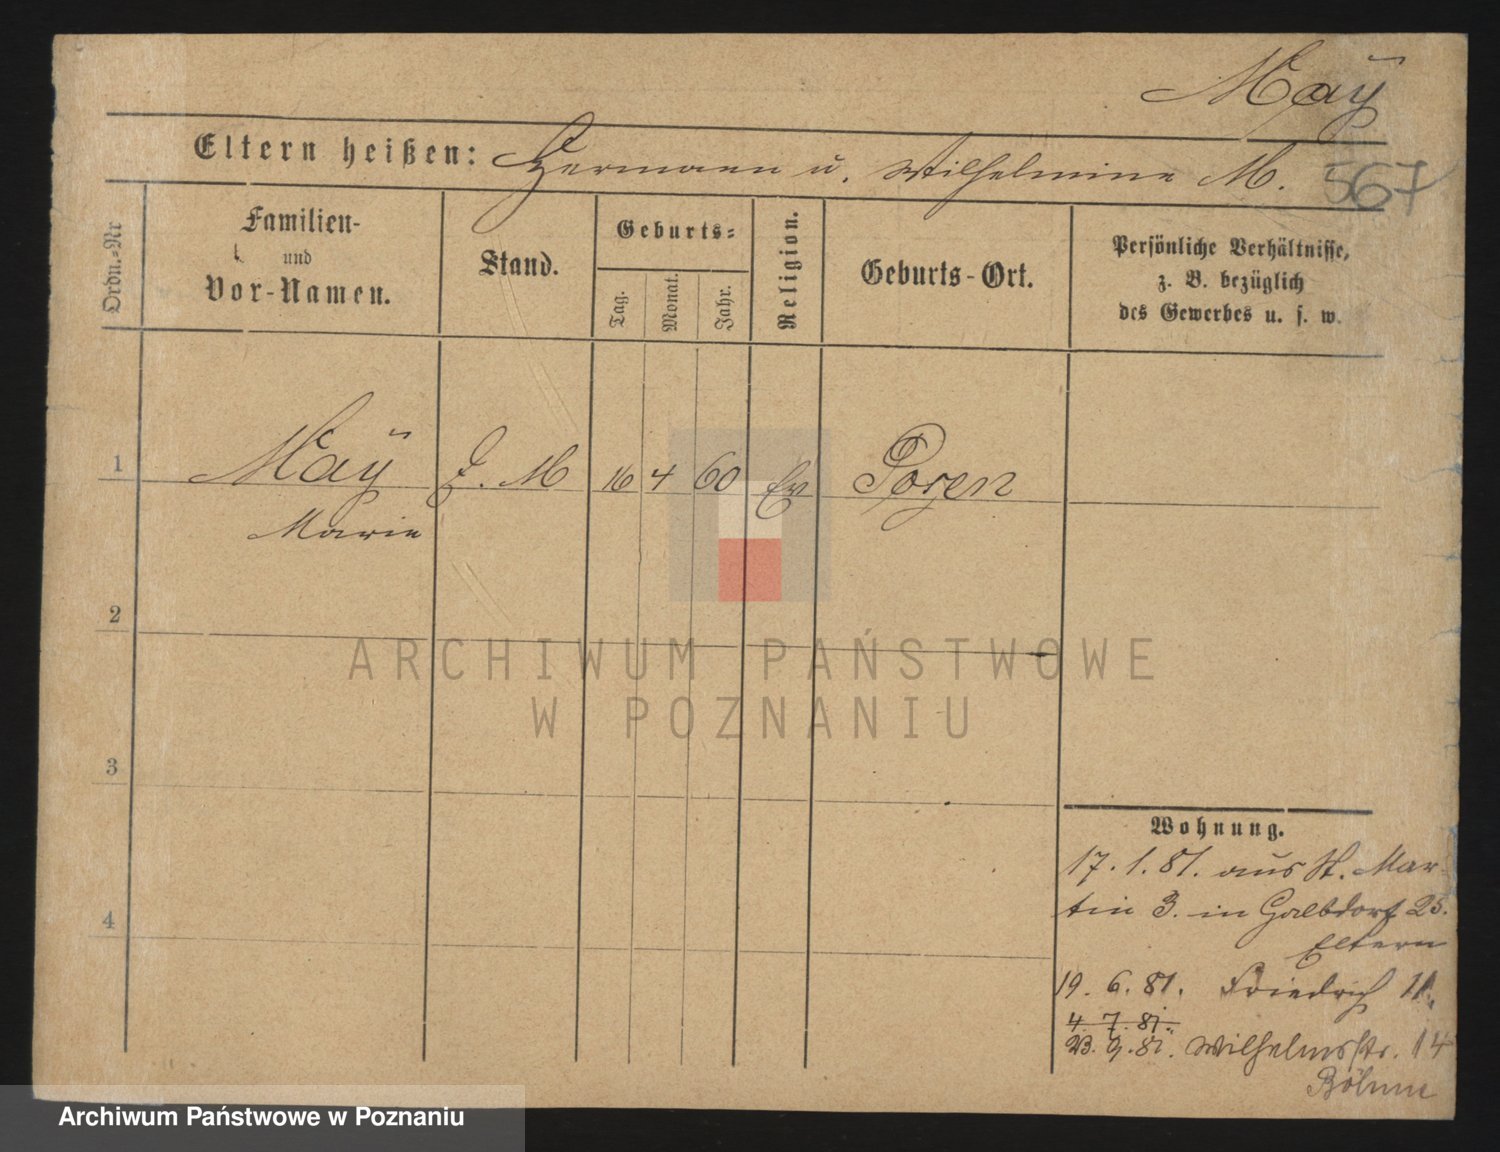 Maÿ
Eltern heißen: Hermann u. Wilhelmine M. 567
Ordn.-Nr
Familien-
und
Vor-Namen.
Stand.
Geburts-
Tag.
Monat.
Jahr.
Religion.
Geburts-Ort.
Persönliche Verhältnisse,
z. B. bezüglich
des Gewerbes u. s. w.
1 Maÿ D. M 16 4 60 Ev Posen
Marie
2
3
4
Wohnung.
17. 1. 81. aus St. Mar-
tin 3. in Halbdorf 25.
Eltern
19. 6. 81. Friedrich 11.
4. 7. 81.
23. 9. 81. Wilhelmsstr. 14
Böhme
ARCHIWUM PAŃSTWOWE
W POZNANIU
Archiwum Państwowe w Poznaniu